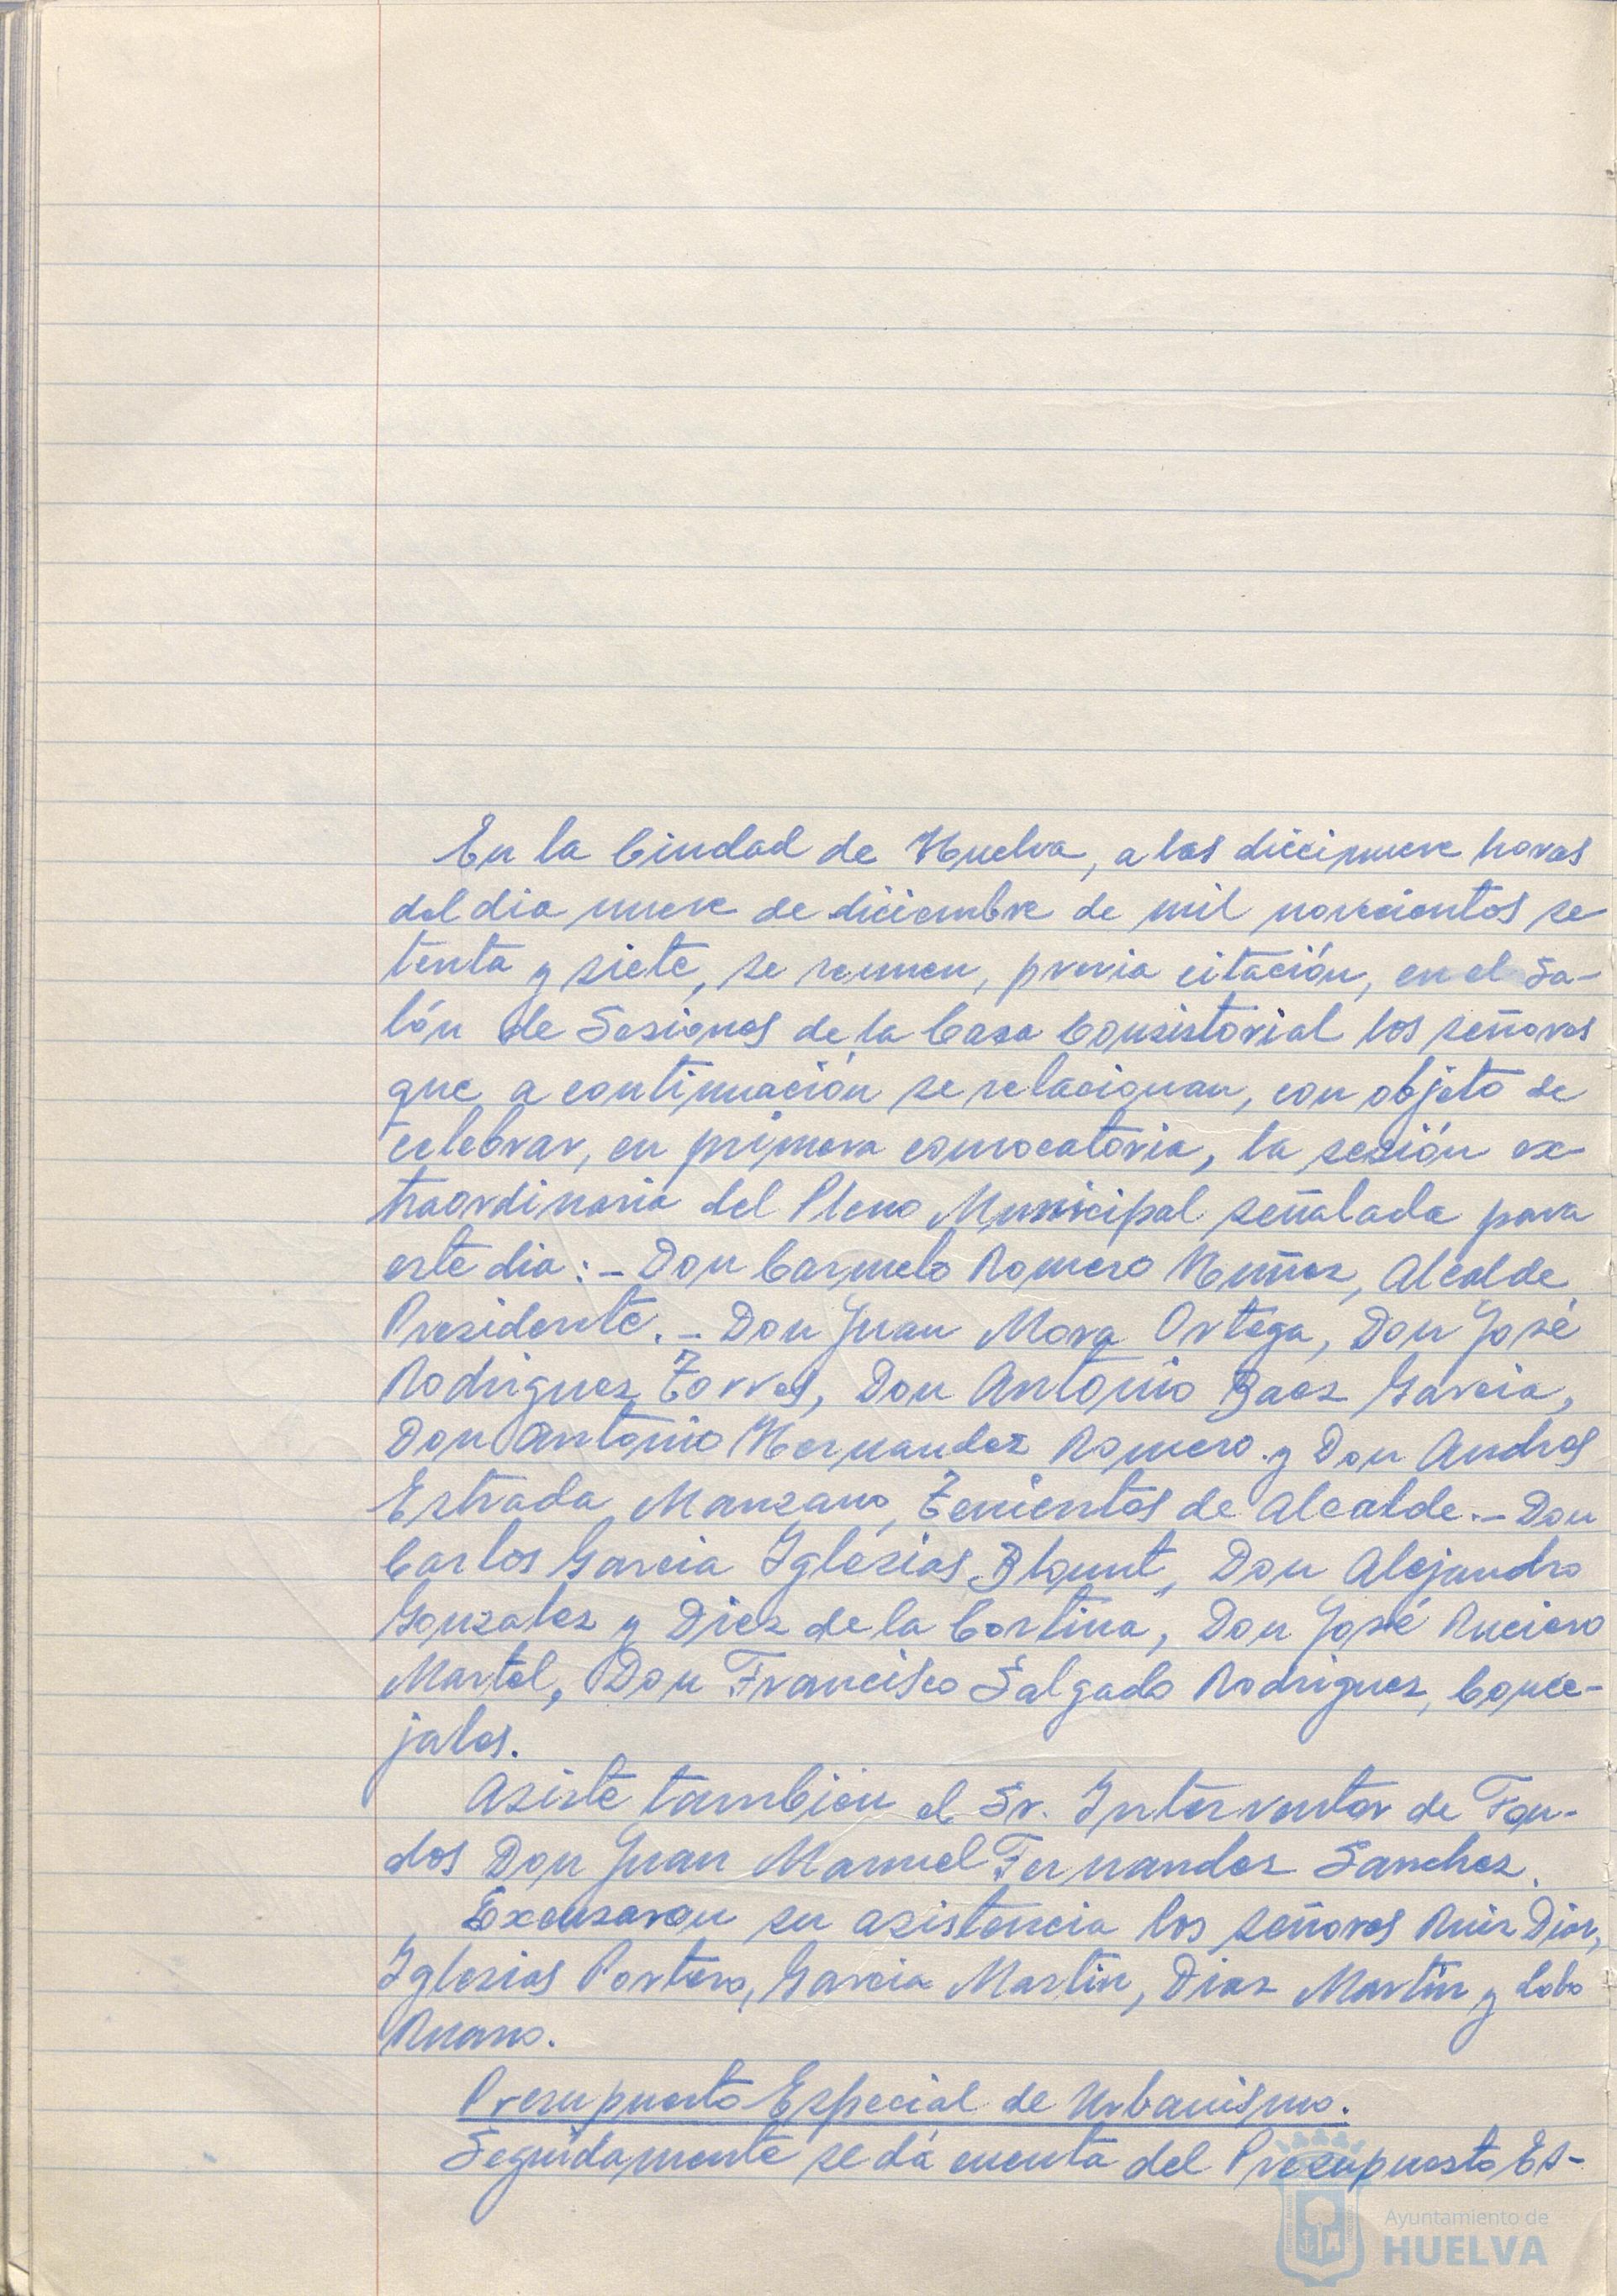 En la Ciudad de Huelva, a las diecinueve horas
del dia nueve de diciembre de mil novecientos se
tenta y siete, se reunen, previa citación, en el Sa-
lón de Sesiones de la Casa Consistorial los señores
que a continuación se relacionan, con objeto de
celebrar, en primera convocatoria, la sesión ex-
traordinaria del Pleno Municipal señalada para
este dia: - Don Carmelo Romero Muñoz, Alcalde
Presidente. - Don Juan Mora Ortega, Don José
Rodriguez Torres, Don Antonio Baez Garcia,
Don Antonio Hernandez Romero y Don Andres
Estrada Manzano, Tenientes de Alcalde. - Don
Carlos Garcia Iglesias Blount, Don Alejandro
Gonzalez y Diez de la Cortina, Don José Ruciero
Martel, Don Francisco Salgado Rodriguez, Conce-
jales.
Asiste tambien el Sr. Interventor de Fon-
dos Don Juan Manuel Fernandez Sanchez.
Excusaron su asistencia los señores Ruiz Diaz,
Iglesias Portero, Garcia Martin, Diaz Martin y Lobo
Ruano.
Presupuesto Especial de Urbanismo.
Seguidamente se dá cuenta del Presupuesto Es-
Ayuntamiento de
HUELVA